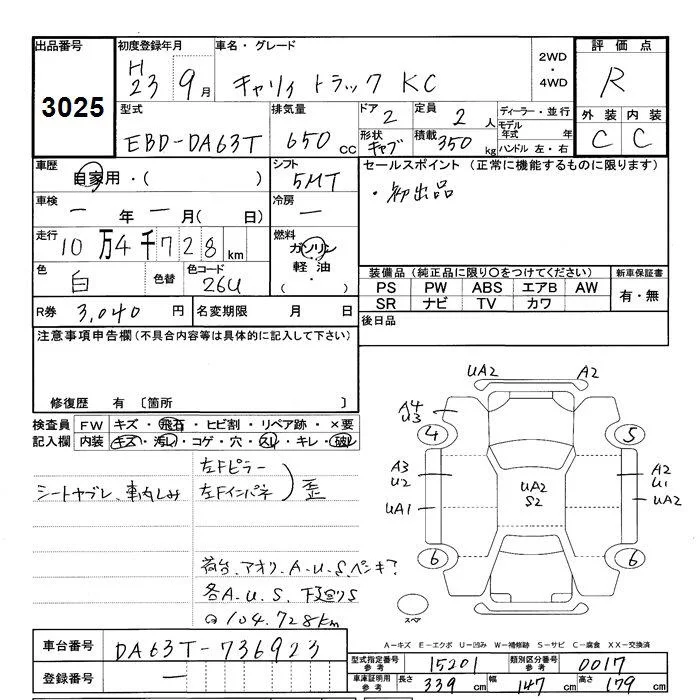 出品番号 初度登録年月 車名・グレード 2WD・4WD 評価点
3025 H23 9月 キャリィ トラック KC R
型式 排気量 ドア 2 定員 2人 ディーラー・並行 外装 内装
モデル年式 年
EBD-DA63T 650cc 形状 キャブ 積載 350kg ハンドル 左・右 C C
車歴 シフト セールスポイント (正常に機能するものに限ります)
自家用・( ) 5MT ・初出品
車検 冷房
ー年ー月( 日) ー
走行 燃料
10万4千728km ガソリン
軽油
・( )
色 色替 色コード 装備品 (純正品に限り○をつけてください) 新車保証書
白 26U PS PW ABS エアB AW 有・無
SR ナビ TV カワ
R券 3,040円 名変期限 月 日 後日品
注意事項申告欄 (不具合内容等は具体的に記入して下さい)
修復歴 有 〔箇所 〕
検査員 FW キズ・飛石・ヒビ割・リペア跡・×要
記入欄 内装 キズ・汚れ・コゲ・穴・スレ・キレ・破レ
左Fピラー
シートヤブレ、車内しみ 左Fインパネ 歪
荷台、アオリ、A.U.S.ペンキ?
各A.U.S. 下廻りS
104.728km
UA2 A2
A4
U3
4 5
A3 A2
U2 U1
UA2
S2
UA1 UA2
6 6
スペア
A−キズ E−エクボ U−凹み W−補修跡 S−サビ C−腐食 XX−交換済
車台番号 DA63T-736923
登録番号 ー
型式指定番号 参考 15201 類別区分番号 参考 0017
車庫証明用 参考 長さ 339cm 幅 147cm 高さ 179cm